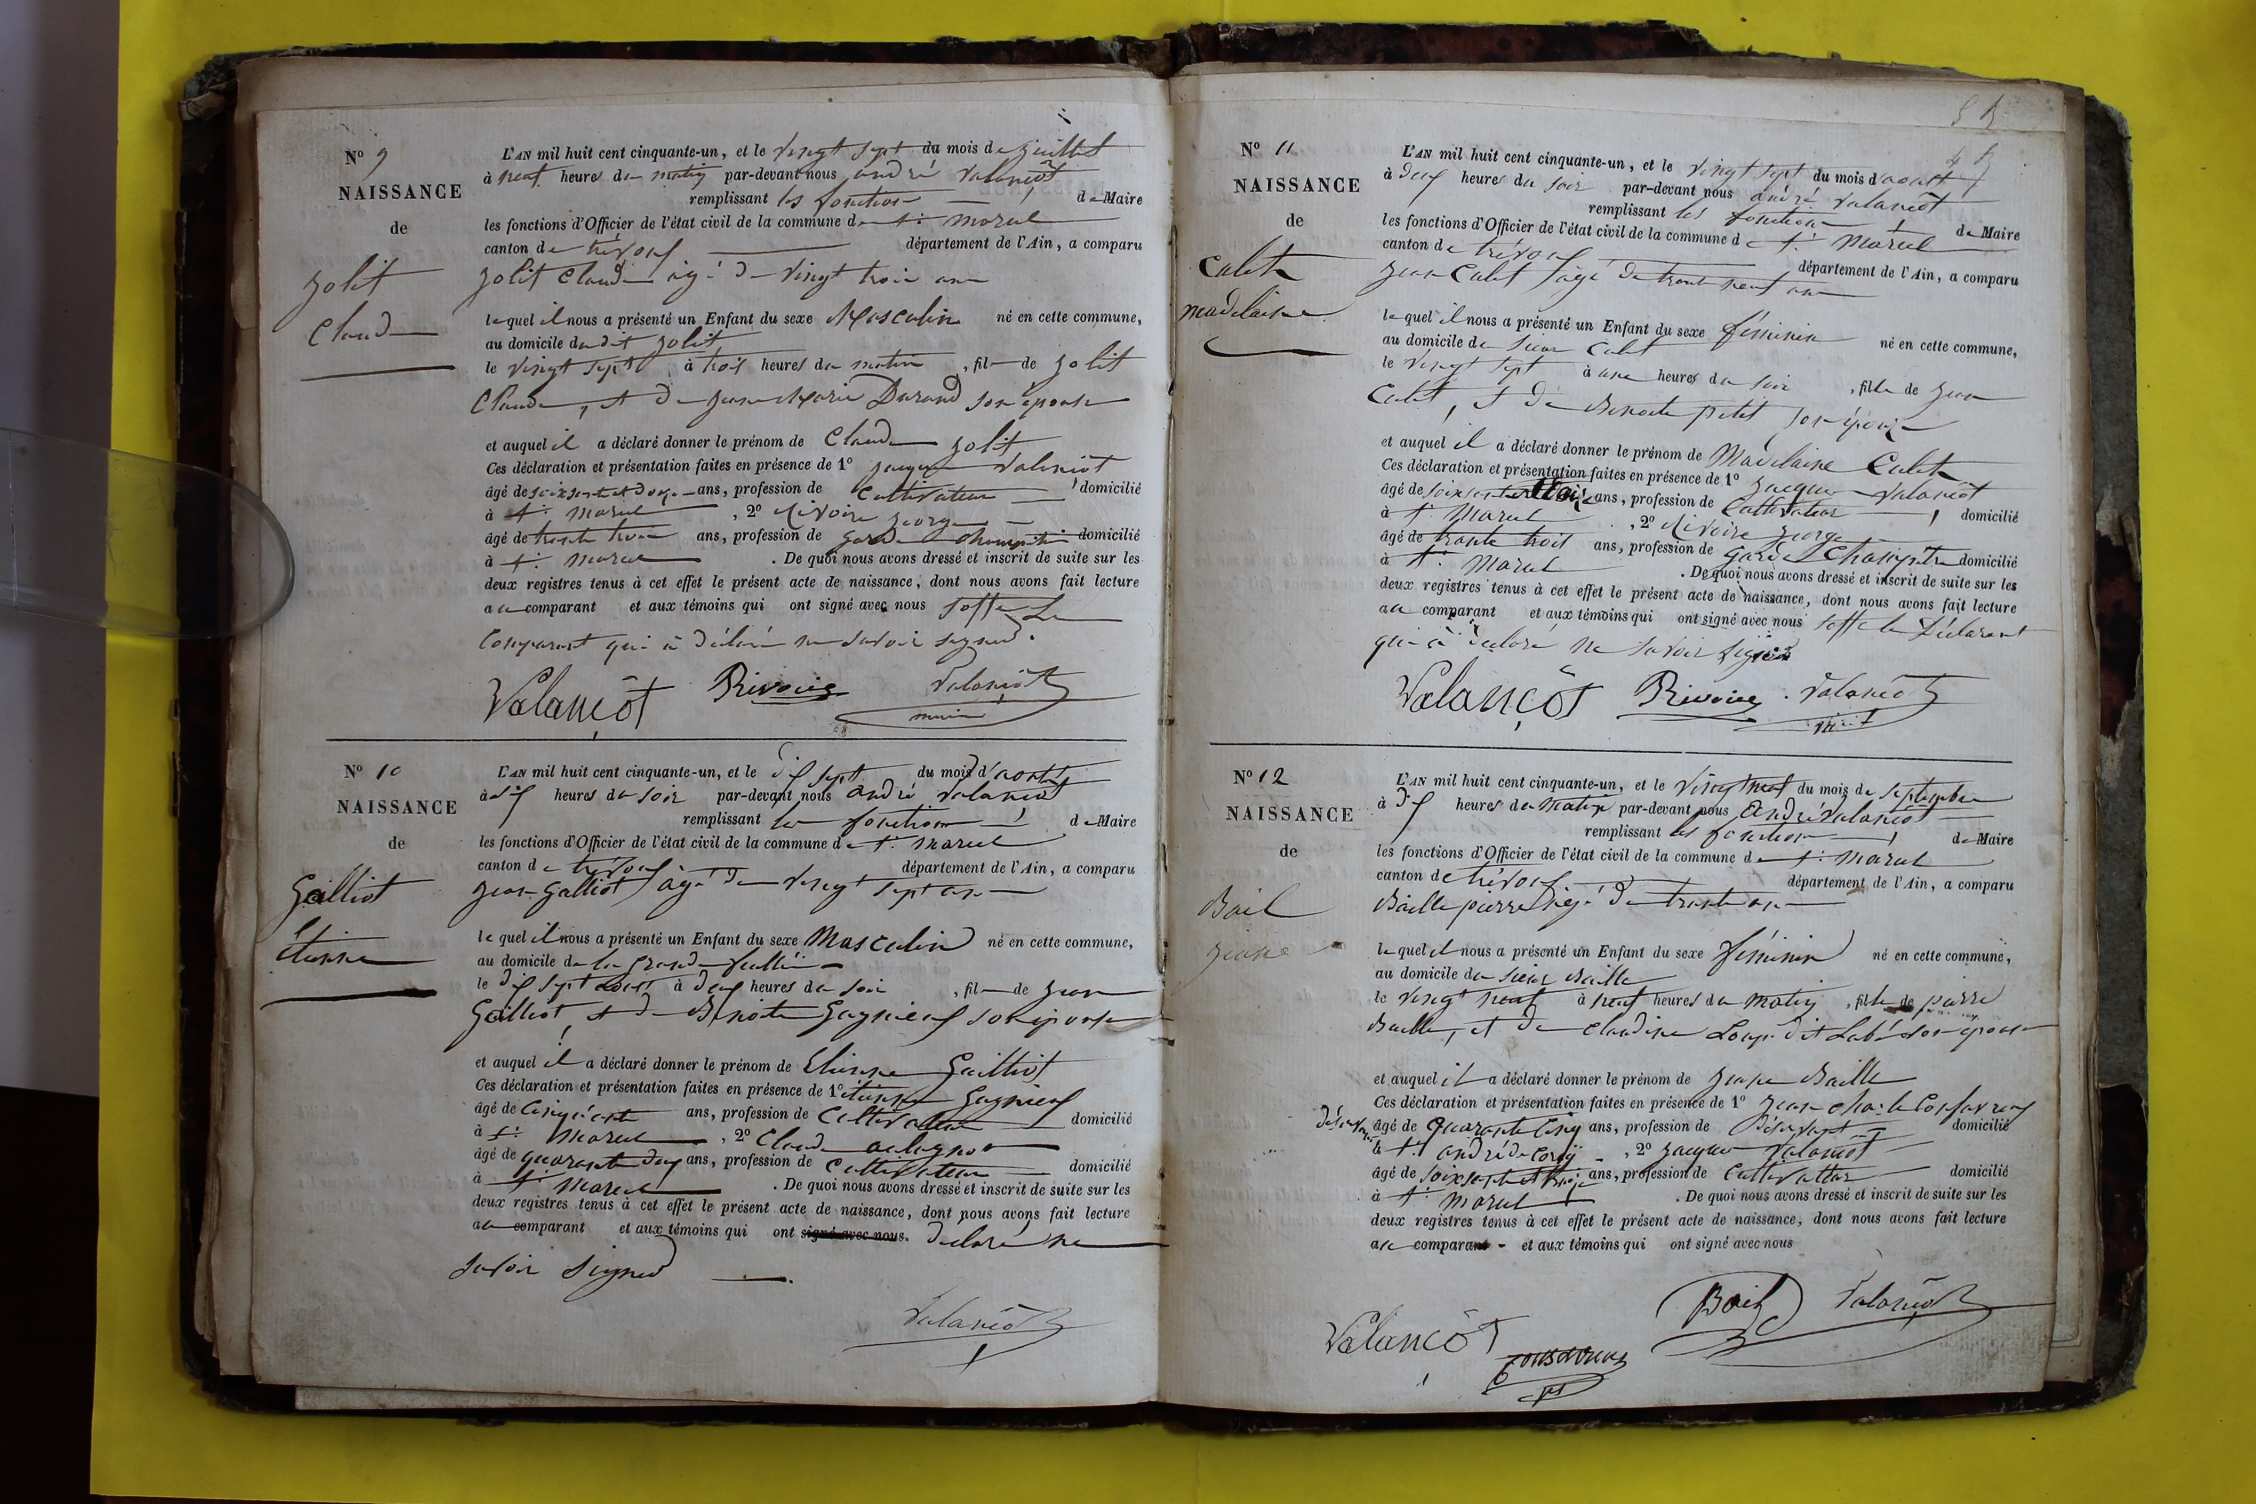 N° 9
NAISSANCE
de
Jolit
Claude
L'AN mil huit cent cinquante-un, et le vingt sept du mois de juillet
à neuf heures du matin par-devant nous andré Valançot
remplissant les fonctions de Maire
les fonctions d'Officier de l'état civil de la commune de St. Marcel
canton de trévoux département de l'Ain, a comparu
Jolit Claude âgé de vingt trois ans
lequel il nous a présenté un Enfant du sexe Masculin né en cette commune,
au domicile dudit Jolit
le vingt sept à trois heures du matin, fils de Jolit
Claude, et de jeane Marie Durand son épouse
et auquel il a déclaré donner le prénom de Claude Jolit
Ces déclaration et présentation faites en présence de 1° jacque Valançot
âgé de soixante et douze ans, profession de Cultivateur domicilié
à St. Marcel, 2° Rivoire george
âgé de trente trois ans, profession de garde champêtre domicilié
à St. Marcel. De quoi nous avons dressé et inscrit de suite sur les
deux registres tenus à cet effet le présent acte de naissance, dont nous avons fait lecture
au comparant et aux témoins qui ont signé avec nous soffe le
Comparant qui a déclaré ne savoir signed.
Valançot Rivoire Valançot
maire
N° 10
NAISSANCE
de
Gailliot
Etienne
L'AN mil huit cent cinquante-un, et le dix sept du mois d'aoutt
à six heures du soir par-devant nous andré Valançot
remplissant les fonctions de Maire
les fonctions d'Officier de l'état civil de la commune de St. Marcel
canton de trévoux département de l'Ain, a comparu
jean Galliot âgé de vingt sept ans
lequel il nous a présenté un Enfant du sexe Masculin né en cette commune,
au domicile de la grande
le dix sept aoutt à deux heures du soir, fils de jean
Gailliot et de Benoite Gagnieux son épouse
et auquel il a déclaré donner le prénom de Etienne Gailliot
Ces déclaration et présentation faites en présence de 1° étienne Gagnieux
âgé de cinquante ans, profession de Cultivateur domicilié
à St. Marcel, 2° Claude
âgé de quarante deux ans, profession de Cultivateur domicilié
à St. Marcel. De quoi nous avons dressé et inscrit de suite sur les
deux registres tenus à cet effet le présent acte de naissance, dont nous avons fait lecture
au comparant et aux témoins qui ont signé avec nous. déclaré ne
savoir signed
Valançot
N° 11
NAISSANCE
de
Calet
Madelaine
L'AN mil huit cent cinquante-un, et le vingt sept du mois d'aoutt
à deux heures du soir par-devant nous andré Valançot
remplissant les fonctions de Maire
les fonctions d'Officier de l'état civil de la commune de St. Marcel
canton de trévoux département de l'Ain, a comparu
jean Calet âgé de trente neuf ans
lequel il nous a présenté un Enfant du sexe féminin né en cette commune,
au domicile du sieur Calet
le vingt sept à une heures du soir, fille de jean
Calet, et de Benoite petit son épouze
et auquel il a déclaré donner le prénom de Madelaine Calet
Ces déclaration et présentation faites en présence de 1° jacque Valançot
âgé de soixante ans, profession de Cultivateur domicilié
à St. Marcel, 2° Rivoire george
âgé de trante trois ans, profession de garde champêtre domicilié
à St. Marcel. De quoi nous avons dressé et inscrit de suite sur les
deux registres tenus à cet effet le présent acte de naissance, dont nous avons fait lecture
au comparant et aux témoins qui ont signé avec nous soffe le Déclarant
qui a déclaré ne savoir signer
Valançot Rivoire Valançot
N° 12
NAISSANCE
de
Bail
jeane
L'AN mil huit cent cinquante-un, et le vingt neuf du mois de septembre
à dix heures du matin par-devant nous André Valançot
remplissant les fonction de Maire
les fonctions d'Officier de l'état civil de la commune de St. Marcel
canton de trévoux département de l'Ain, a comparu
Baille pierre âgé de trante ans
lequel il nous a présenté un Enfant du sexe féminin né en cette commune,
au domicile du sieur Baille
le vingt neuf à neuf heures du matin, fille de pierre
Baille, et de claudine Loup dit Labé son épouse
et auquel il a déclaré donner le prénom de jeane Baille
Ces déclaration et présentation faites en présence de 1° jean
âgé de quarante cinq ans, profession de domicilié
à St. andré de Corcy, 2° jacque Valançot
âgé de soixante et treize ans, profession de Cultivattur domicilié
à St. Marcel. De quoi nous avons dressé et inscrit de suite sur les
deux registres tenus à cet effet le présent acte de naissance, dont nous avons fait lecture
au comparant et aux témoins qui ont signé avec nous
Bail Valançot
Valançot